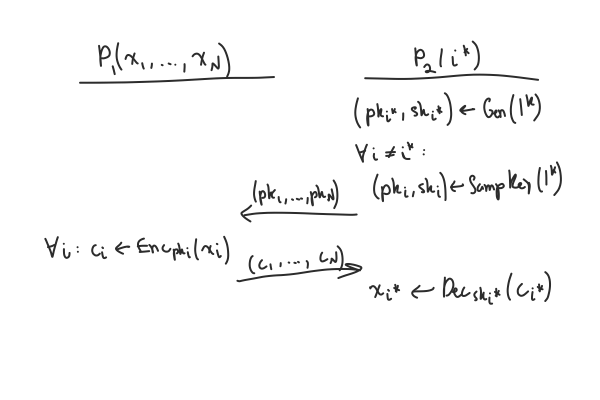 P₁(x₁,...,x_N)
P₂(i*)
(pk_{i*}, sk_{i*}) ← Gen(1^k)
∀i ≠ i*:
(pk_i, sk_i) ← SampKey(1^k)
(pk₁,...,pk_N)
∀i: c_i ← Enc_{pk_i}(x_i)
(c₁,..., c_N)
x_{i*} ← Dec_{sk_{i*}}(c_{i*})